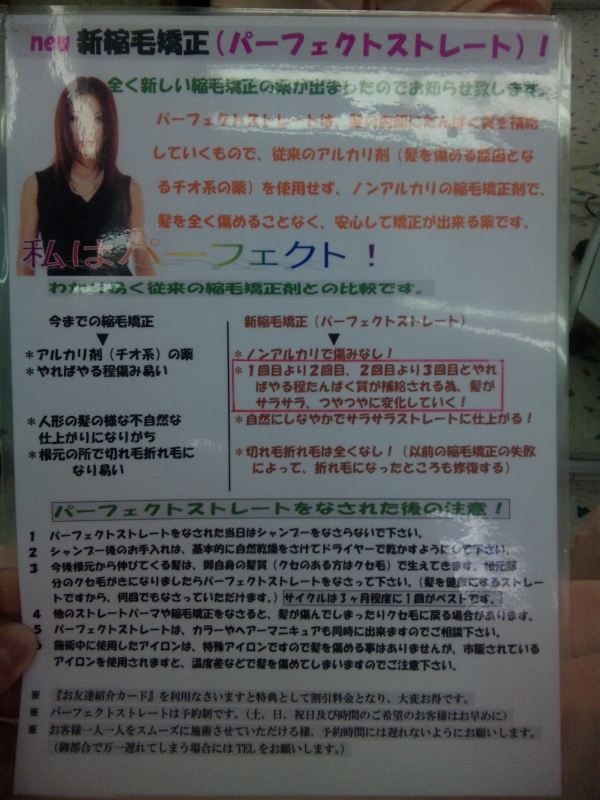 new 新縮毛矯正(パーフェクトストレート)!
全く新しい縮毛矯正の薬が出ましたのでお知らせ致します。
パーフェクトストレートは、髪の内部にたんぱく質を補給
していくもので、従来のアルカリ剤(髪を傷める原因とな
るチオ系の薬)を使用せず、ノンアルカリの縮毛矯正剤で、
髪を全く傷めることなく、安心して矯正が出来る薬です。
私はパーフェクト!
わかり易く従来の縮毛矯正剤との比較です。
今までの縮毛矯正
▼
*アルカリ剤(チオ系)の薬
*やればやる程傷み易い
*人形の髪の様な不自然な
仕上がりになりがち
*根元の所で切れ毛折れ毛に
なり易い
新縮毛矯正(パーフェクトストレート)
▼
*ノンアルカリで傷みなし!
*1回目より2回目、2回目より3回目とやれ
ばやる程たんぱく質が補給される為、髪が
サラサラ、つやつやに変化していく!
*自然にしなやかでサラサラストレートに仕上がる!
*切れ毛折れ毛は全くなし!(以前の縮毛矯正の失敗
によって、折れ毛になったところも修復する)
パーフェクトストレートをなされた後の注意!
1 パーフェクトストレートをなされた当日はシャンプーをなさらないで下さい。
2 シャンプー後のお手入れは、基本的に自然乾燥をさけてドライヤーで乾かすようにして下さい。
3 今後根元から伸びてくる髪は、御自身の髪質(クセのある方はクセ毛)で生えてきます。根元部
分のクセ毛がきになりましたらパーフェクトストレートをなさって下さい。(髪を健康にするストレー
トですから、何回でもなさっていただけます。)サイクルは3ヶ月程度に1回がベストです。
4 他のストレートパーマや縮毛矯正をなさると、髪が傷んでしまったりクセ毛に戻る場合があります。
5 パーフェクトストレートは、カラーやヘアーマニキュアも同時に出来ますのでご相談下さい。
6 施術中に使用したアイロンは、特殊アイロンですので髪を傷める事はありませんが、市販されている
アイロンを使用されますと、温度差などで髪を傷めてしまいますのでご注意下さい。
※ 『お友達紹介カード』を利用なさいますと特典として割引料金となり、大変お得です。
※ パーフェクトストレートは予約制です。(土、日、祝日及び時間のご希望のお客様はお早めに)
※ お客様一人一人をスムーズに施術させていただける様、予約時間には遅れないようにお願いします。
(御都合で万一遅れてしまう場合にはTELをお願いします。)